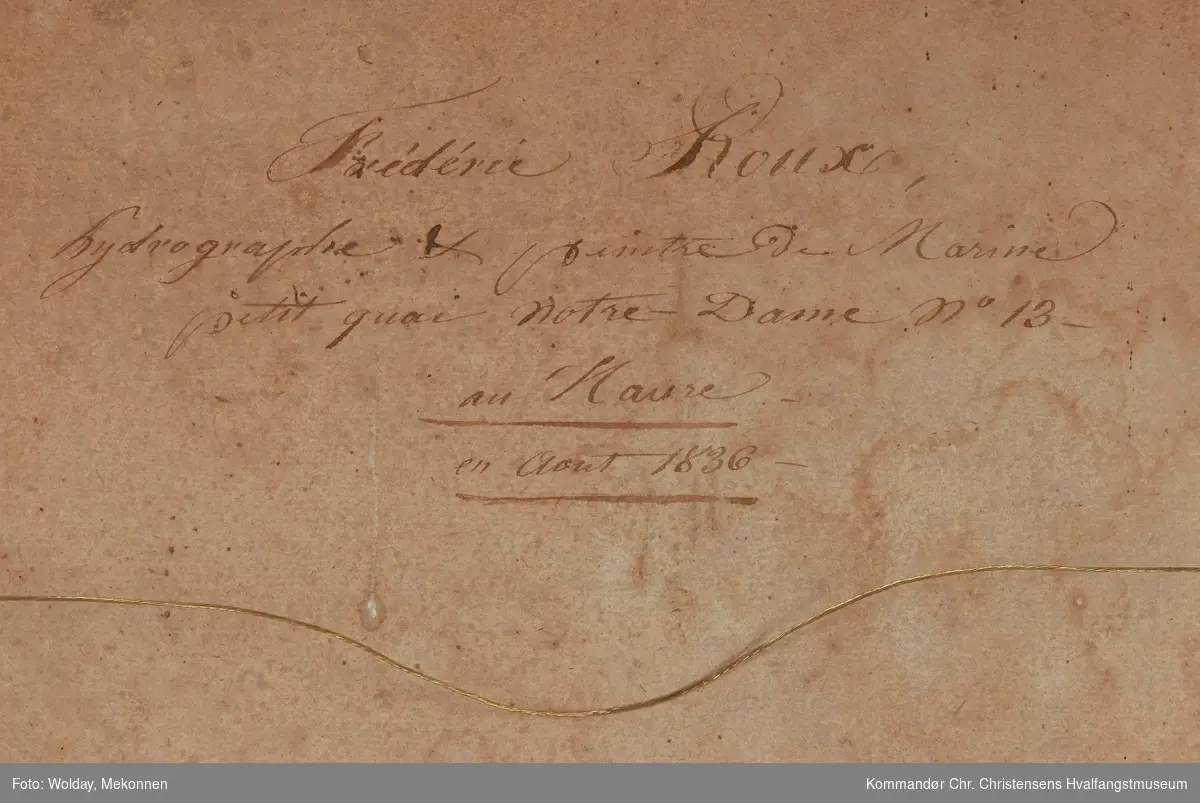 Frédéric Roux,
hydrographe & peintre de Marine
petit quai notre-Dame n° 13 -
au Havre -
en Aout 1836 -
Foto: Wolday, Mekonnen
Kommandør Chr. Christensens Hvalfangstmuseum